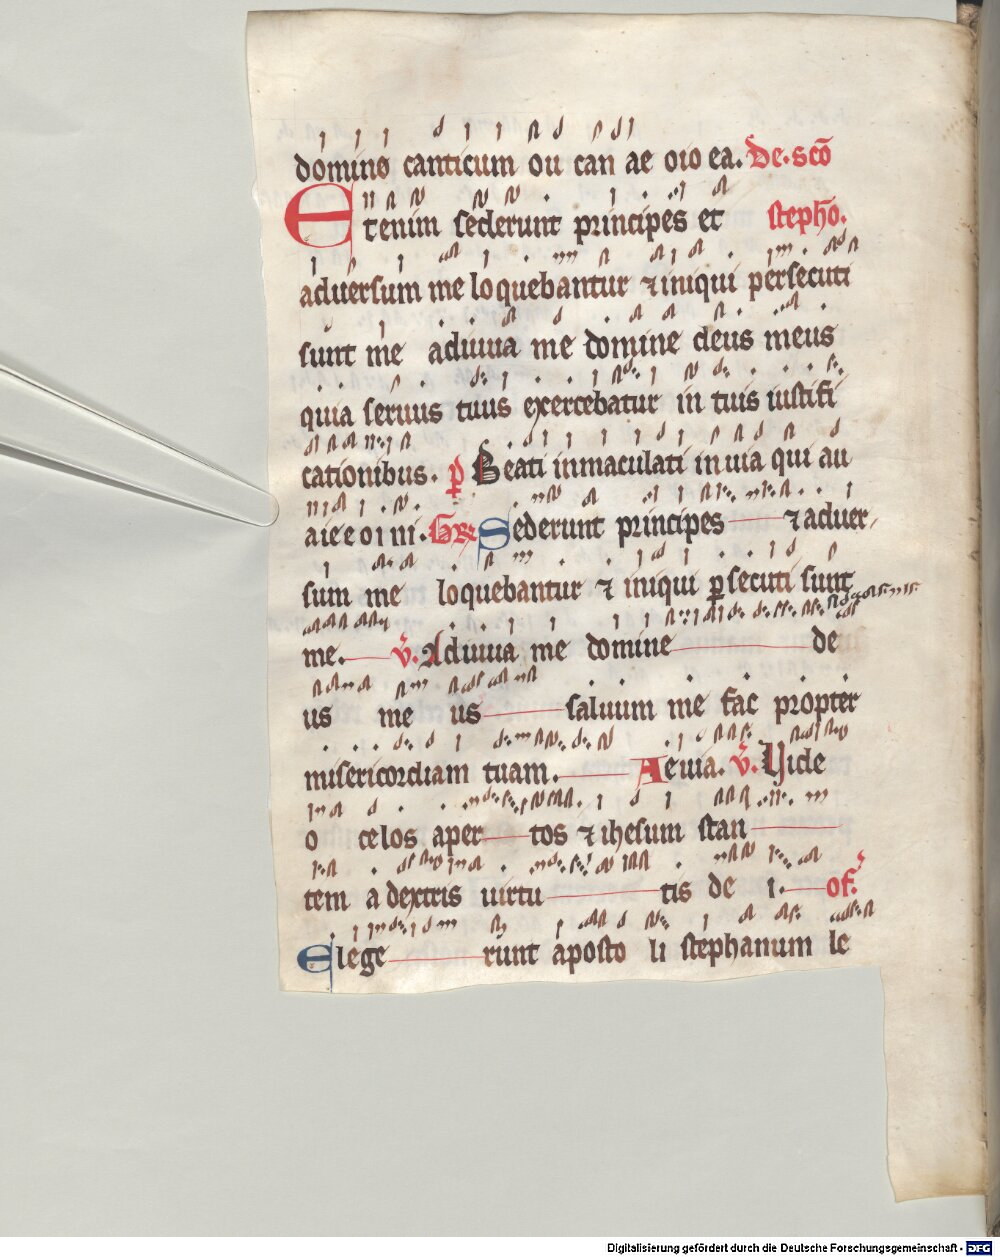 domino canticum ou can ae oio ea. De. sco
Etenim sederunt principes et stepho.
aduersum me loquebantur ⁊ iniqui persecuti
sunt me adiuua me domine deus meus
quia seruus tuus exercebatur in tuis iustifi
cationibus. p Beati inmaculati in uia qui au
aieeoiui. Gr Sederunt principes ⁊ aduer
sum me loquebantur ⁊ iniqui ꝑsecuti sunt
me. v. Adiuua me domine de
us me us saluum me fac propter
misericordiam tuam. Aeuia. v. Uide
o celos aper tos ⁊ ihesum stan
tem a dextris uirtu tis de i. of.
Elege runt aposto li stephanum le
Digitalisierung gefördert durch die Deutsche Forschungsgemeinschaft - DFG